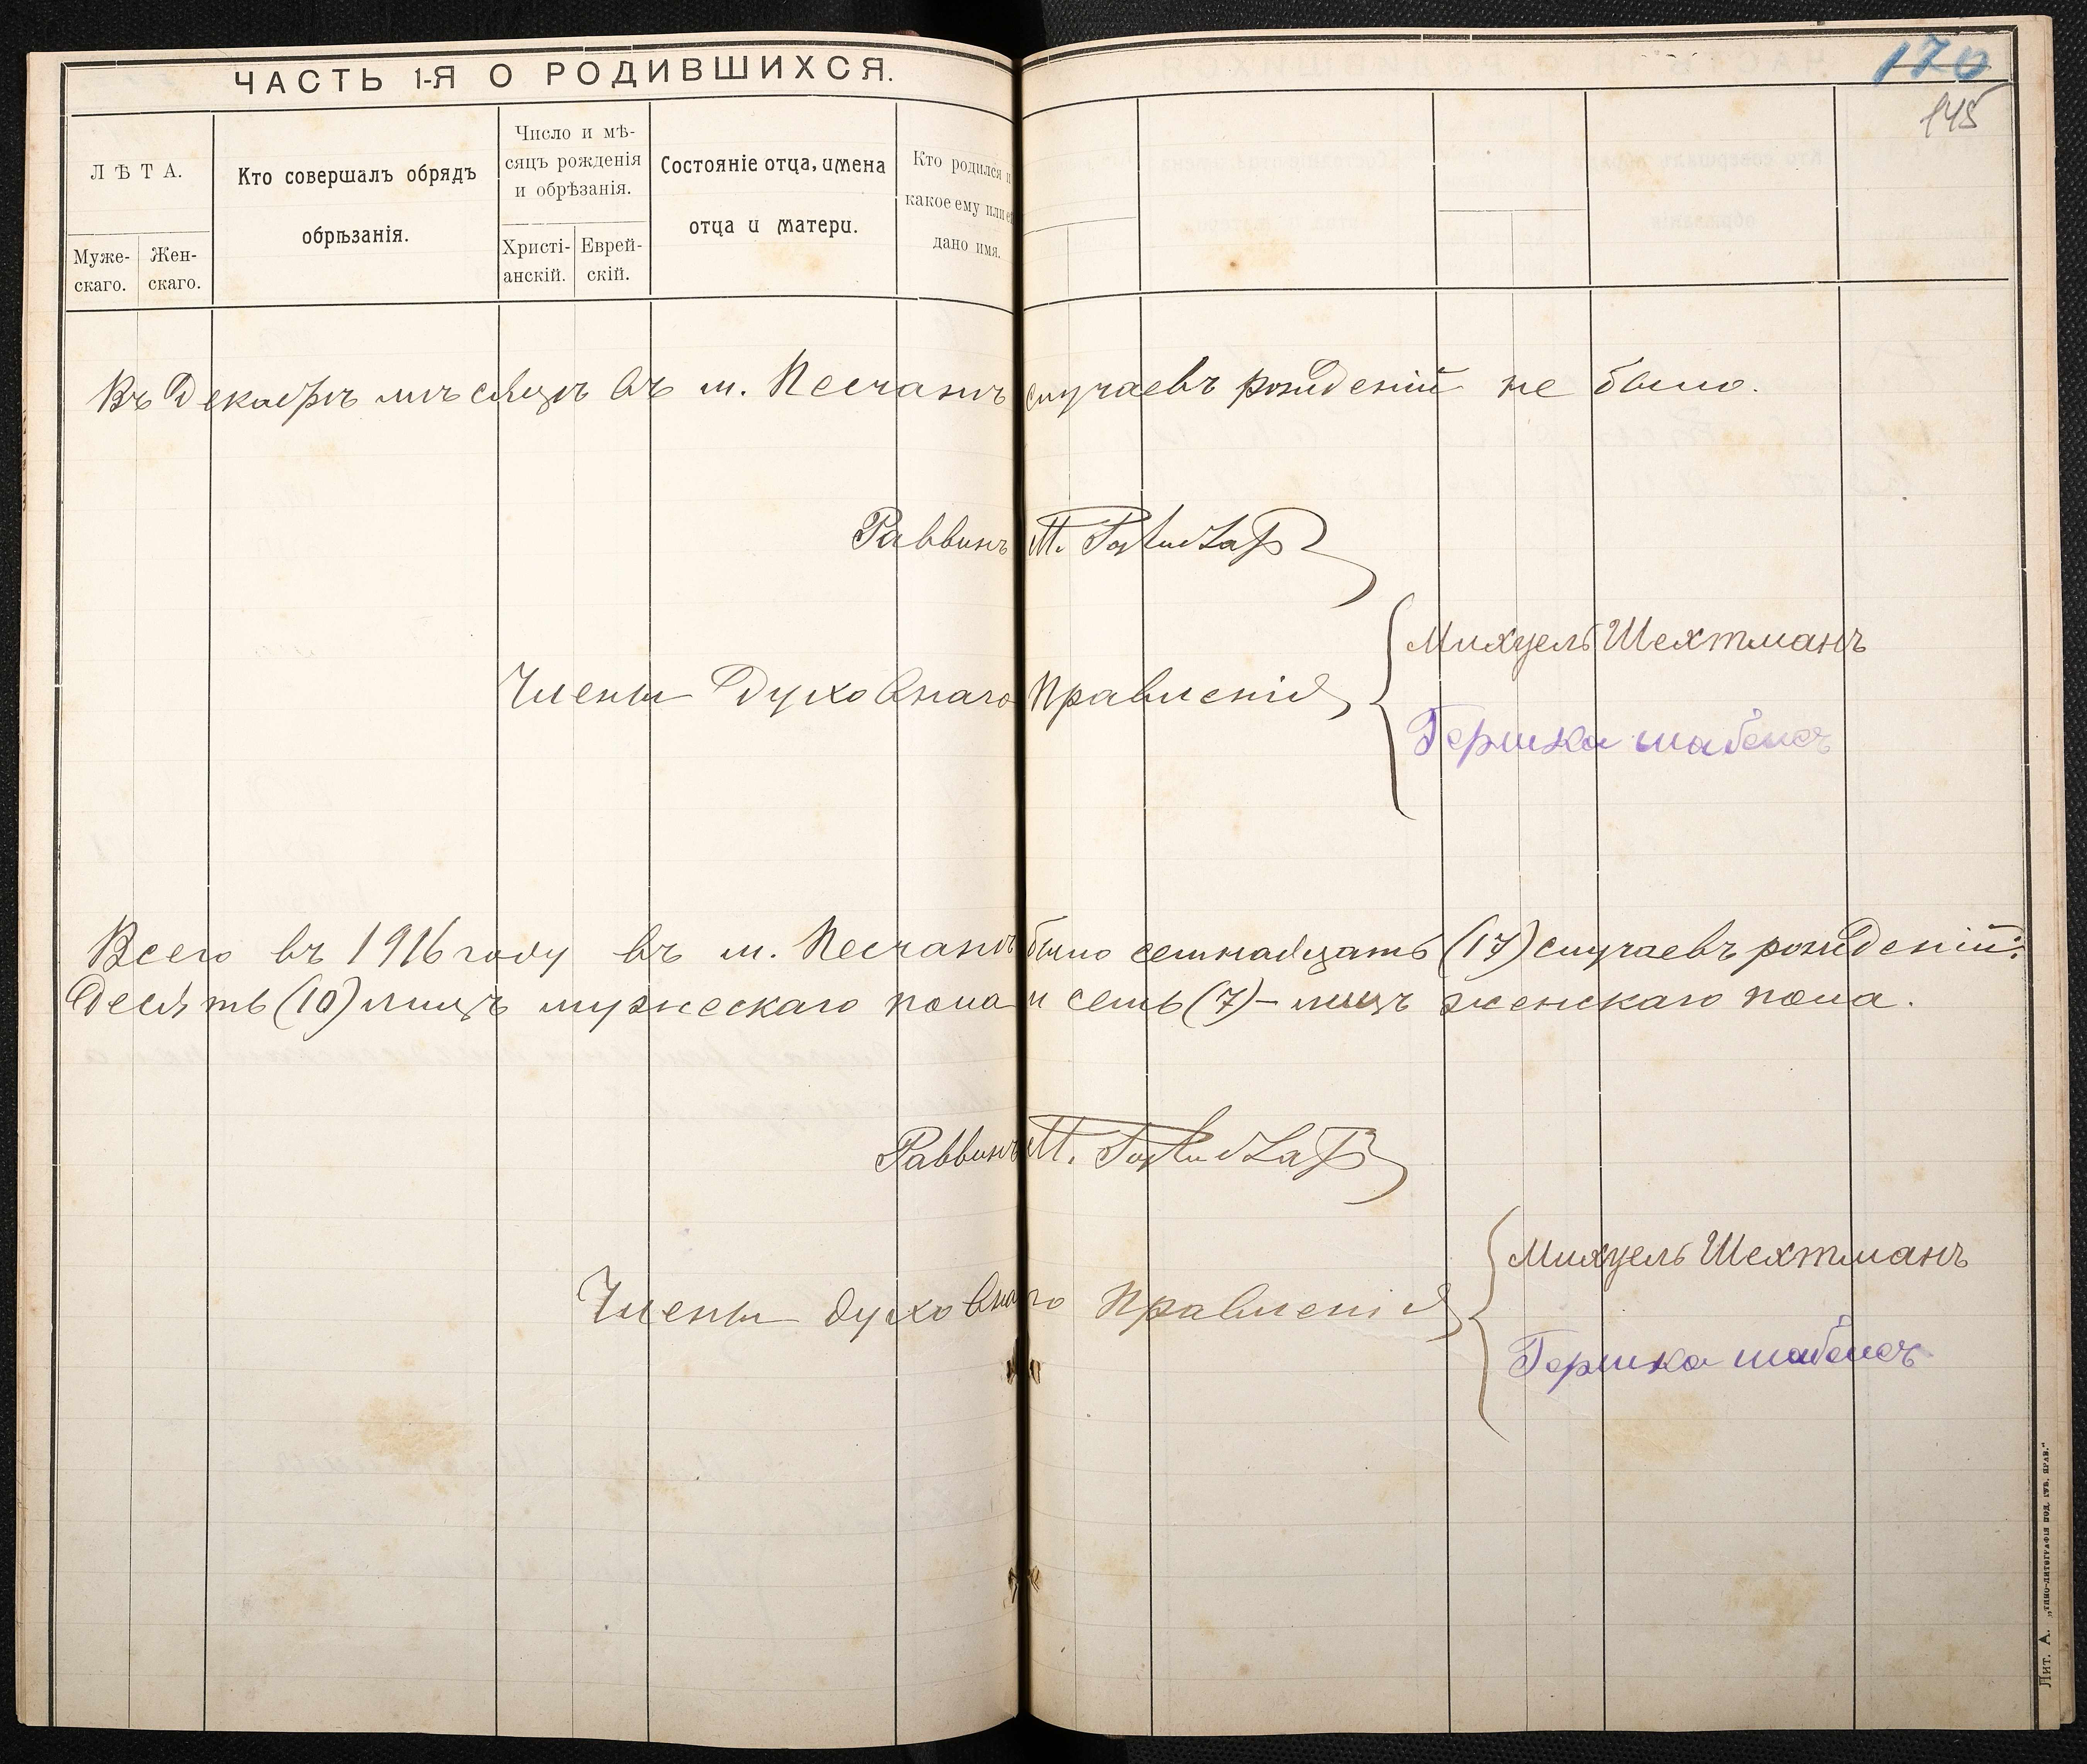 ЧАСТЬ 1-Я О РОДИВШИХСЯ.
170
145
ЛѢТА.
Муже-
скаго.
Жен-
скаго.
Кто совершалъ обрядъ
обрѣзанія.
Число и мѣ-
сяцъ рожденія
и обрѣзанія.
Христі-
анскій.
Еврей-
скій.
Состояніе отца, имена
отца и матери.
Кто родился и
какое ему или ей
дано имя.
Въ Декабрѣ мѣсяцѣ въ м. Песчанѣ случаевъ рожденій не было.
Раввинъ М.
Члены Духовнаго Правленія
Михуель Шехтманъ
Гершко
Всего въ 1916 году въ м. Песчанѣ было семнадцать (17) случаевъ рожденій:
Десять (10) лицъ мужескаго пола и семь (7) – лицъ женскаго пола.
Раввинъ М.
Члены духовнаго Правленія
Михуель Шехтманъ
Гершко
Лит. А. „Типо-литографія под. губ. прав."